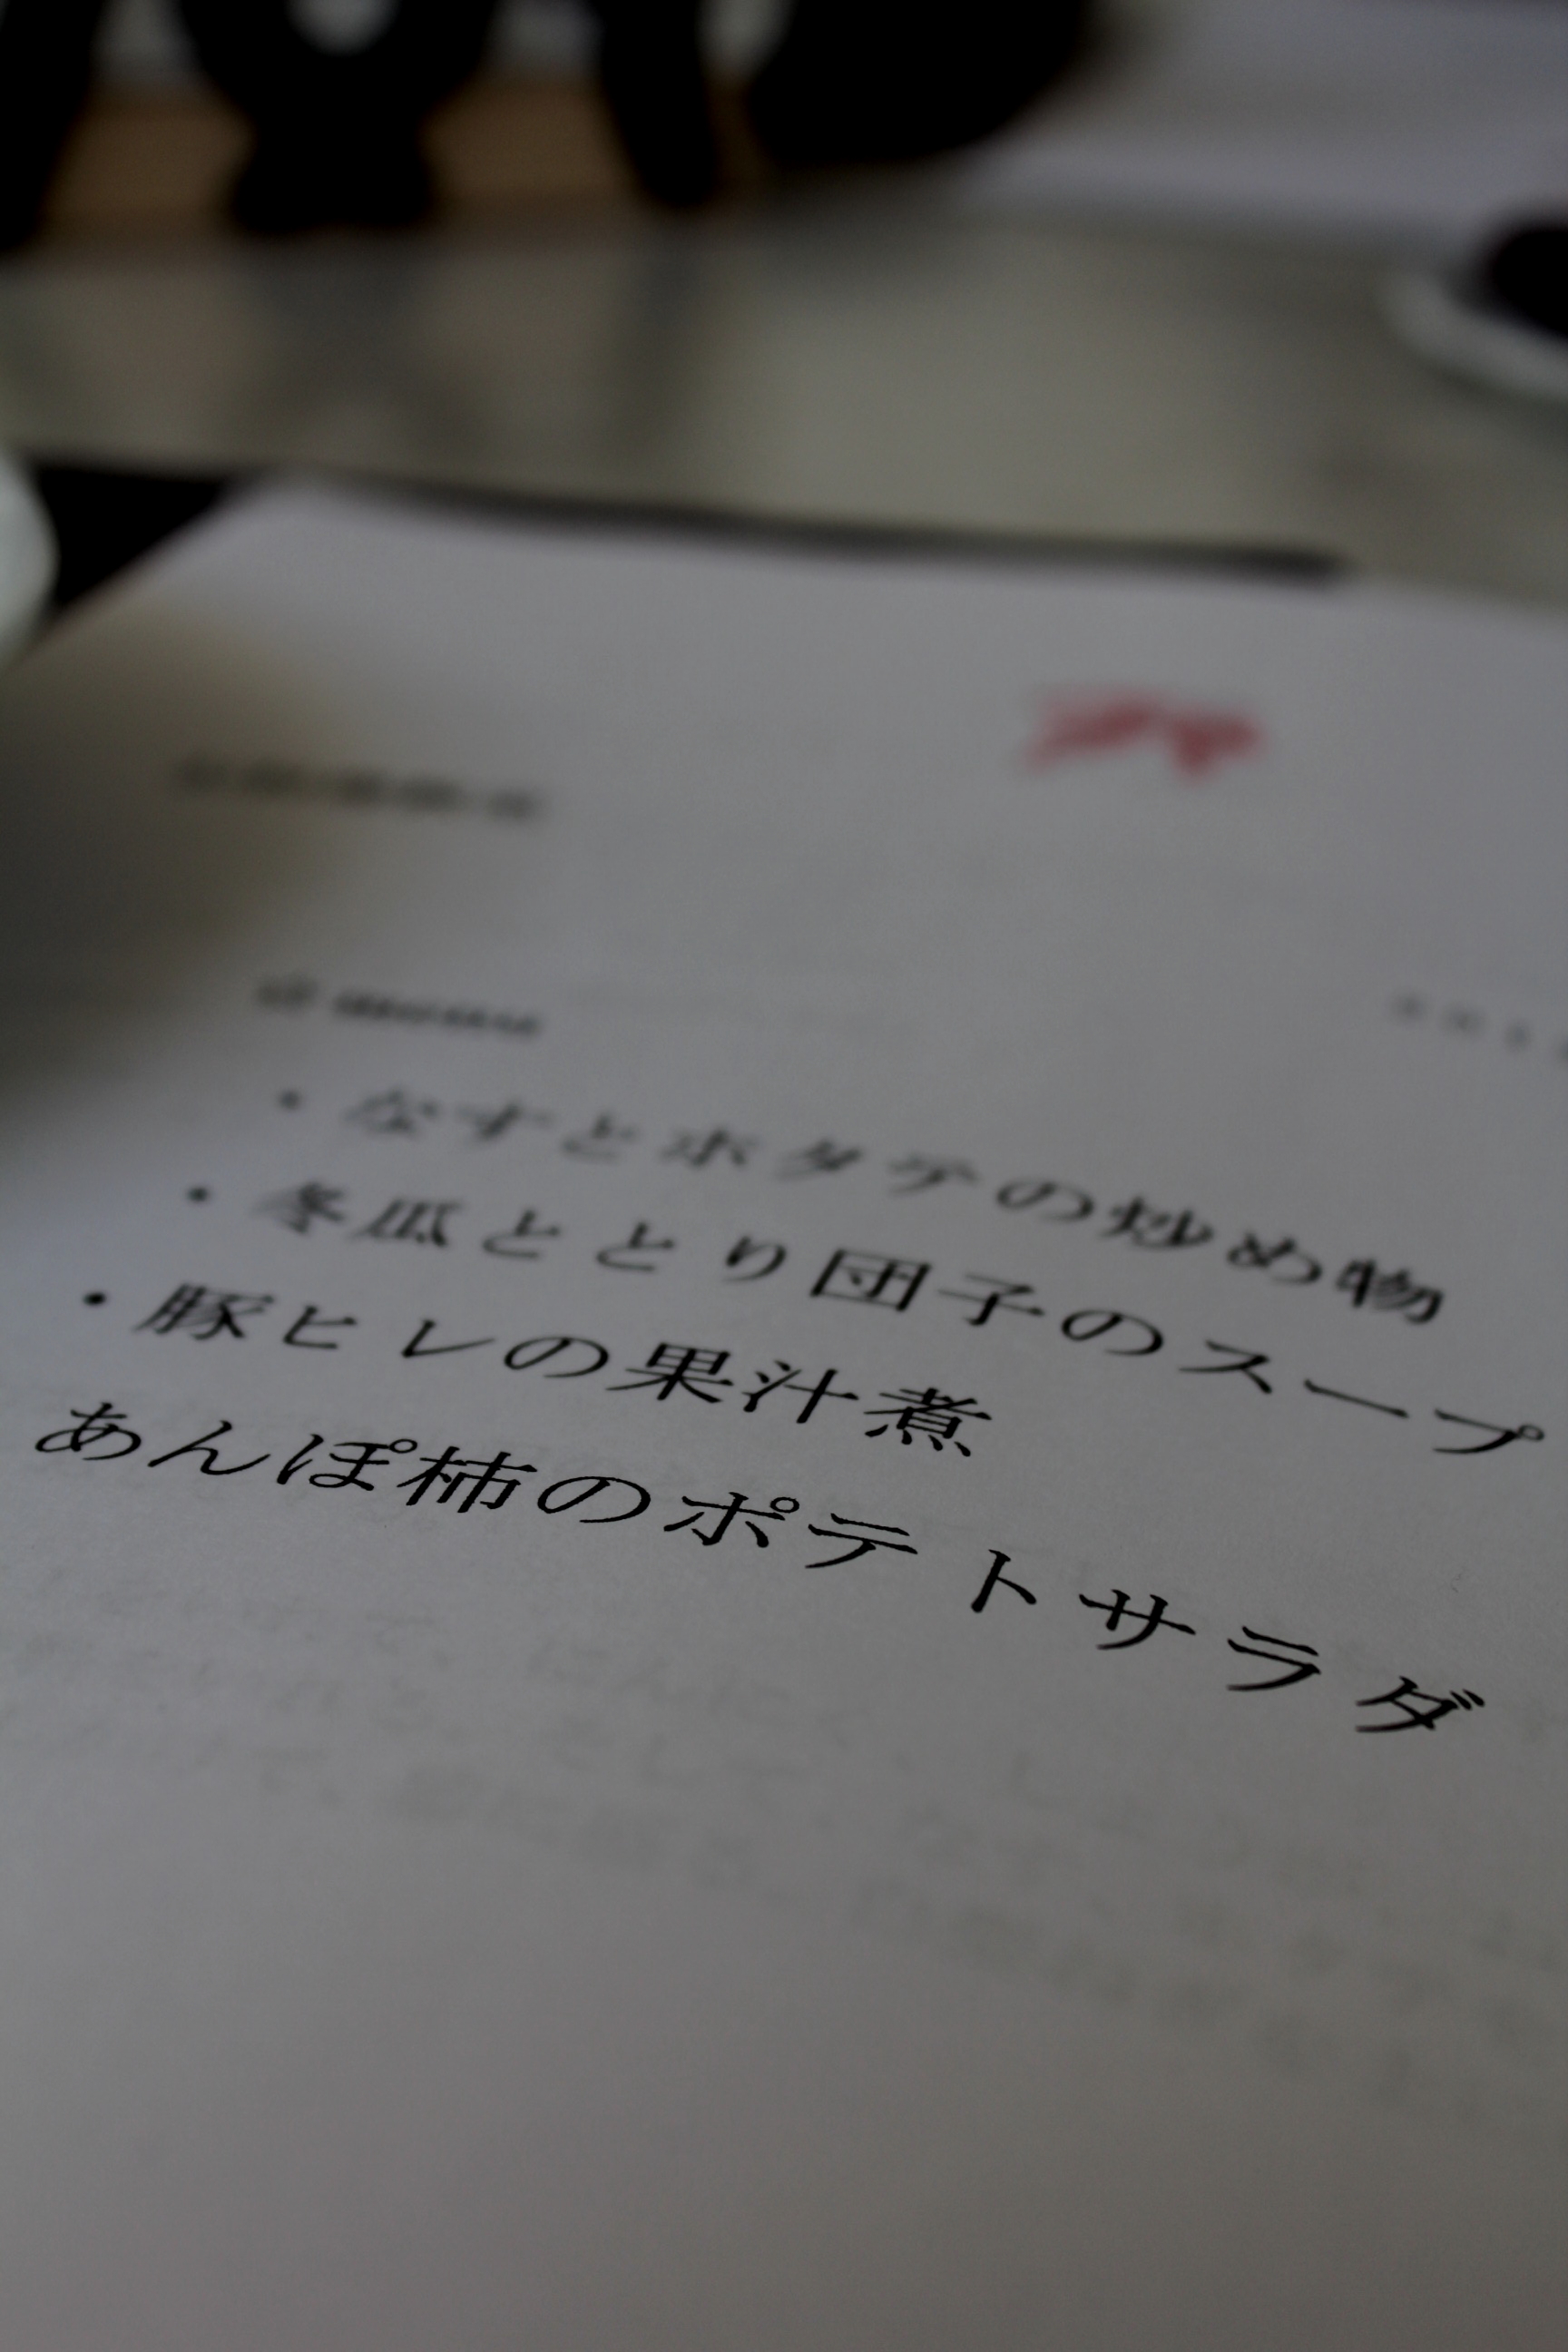 ・なすとホタテの炒め物
・冬瓜ととり団子のスープ
・豚ヒレの果汁煮
あんぽ柿のポテトサラダ